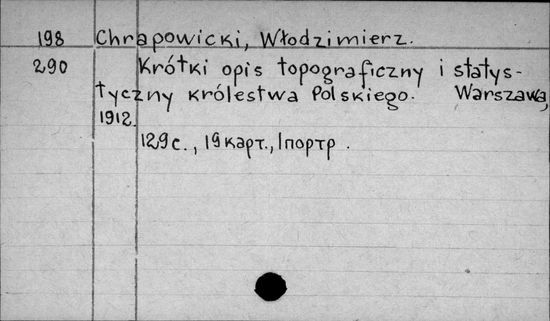 198 Chrapowicki, Włodzimierz.
290 Krótki opis topograficzny i statys-
tyczny królestwa Polskiego. Warszawa,
1912.
129 с., 19 карт., 1 портр.